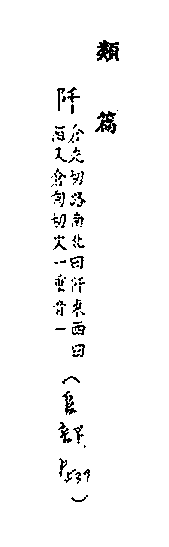 類篇
阡
倉先切路南北曰阡東西曰
陌又倉甸切文一重音一
( P539)